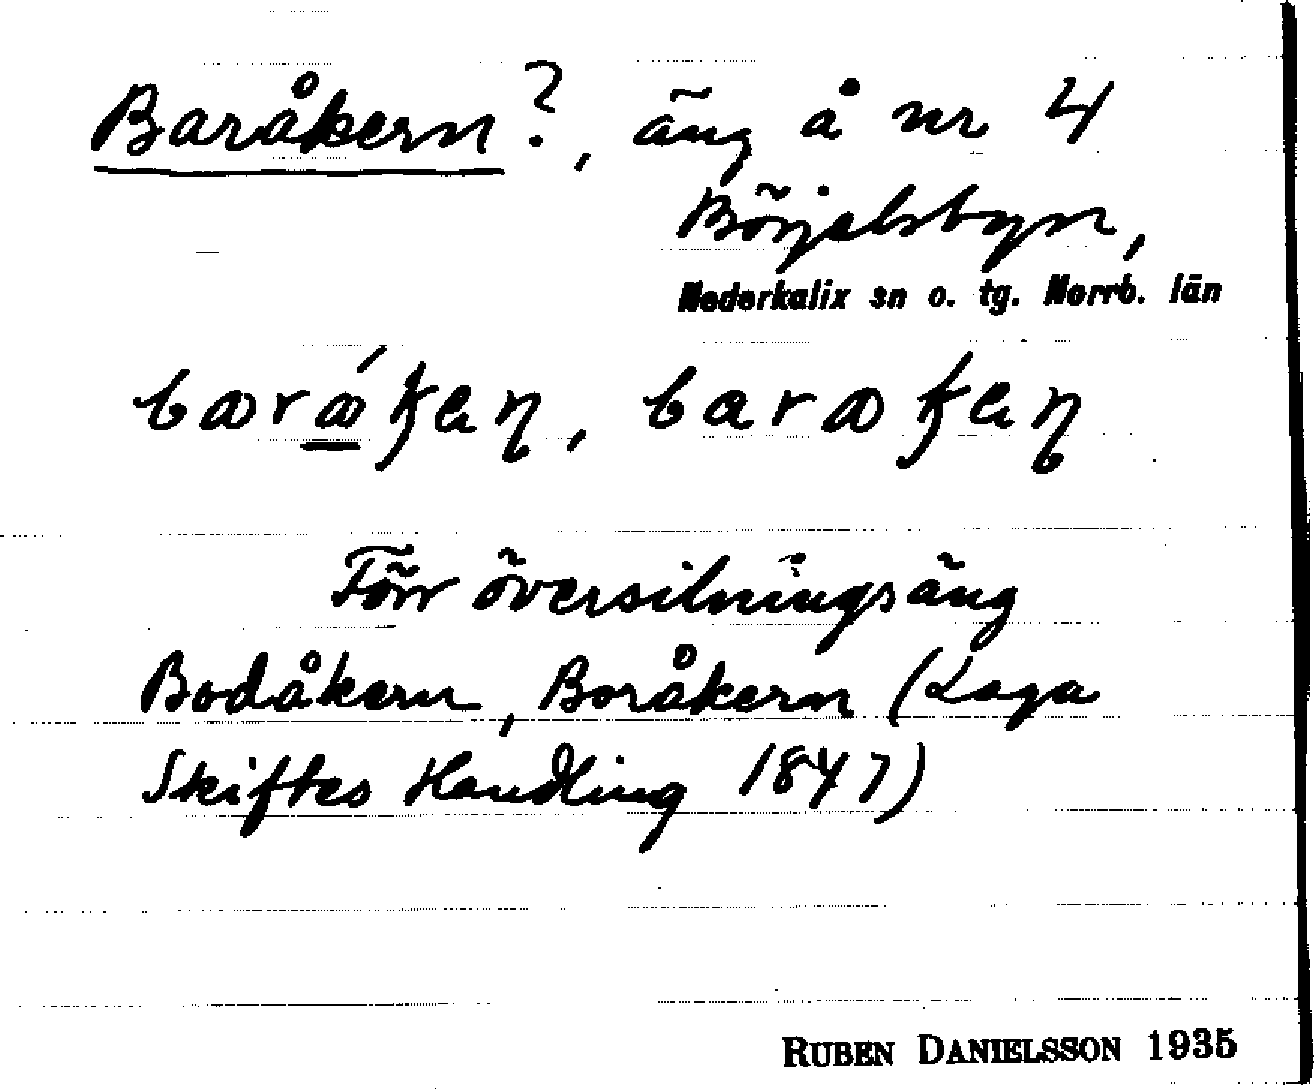 Baråkern?, äng å nr 4
Börjelsbyn,
Nederkalix sn o. tg. Norrb. län
Förr översilningsäng
Bodåkern, Boråkern (Laga
Skiftes Handling 1847)
RUBEN DANIELSSON 1935